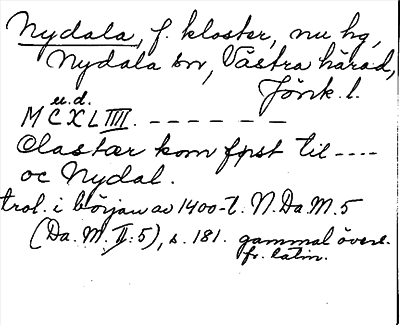 Nydala, f. kloster, nu hg,
Nydala sn, Västra härad,
Jönk. l.
u.d.
MCXLIIII. - - - - - -
Clastær kom først til - - - -
oc Nydal.
trol. i början av 1400-t. N.Da.M.5
(Da. M. II:5), s. 181. gammal övers.
fr. latin.